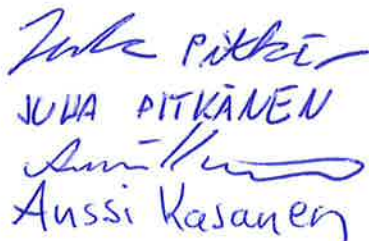 Juha Pitkä
JUHA PITKÄNEN
Anssi Kasanen